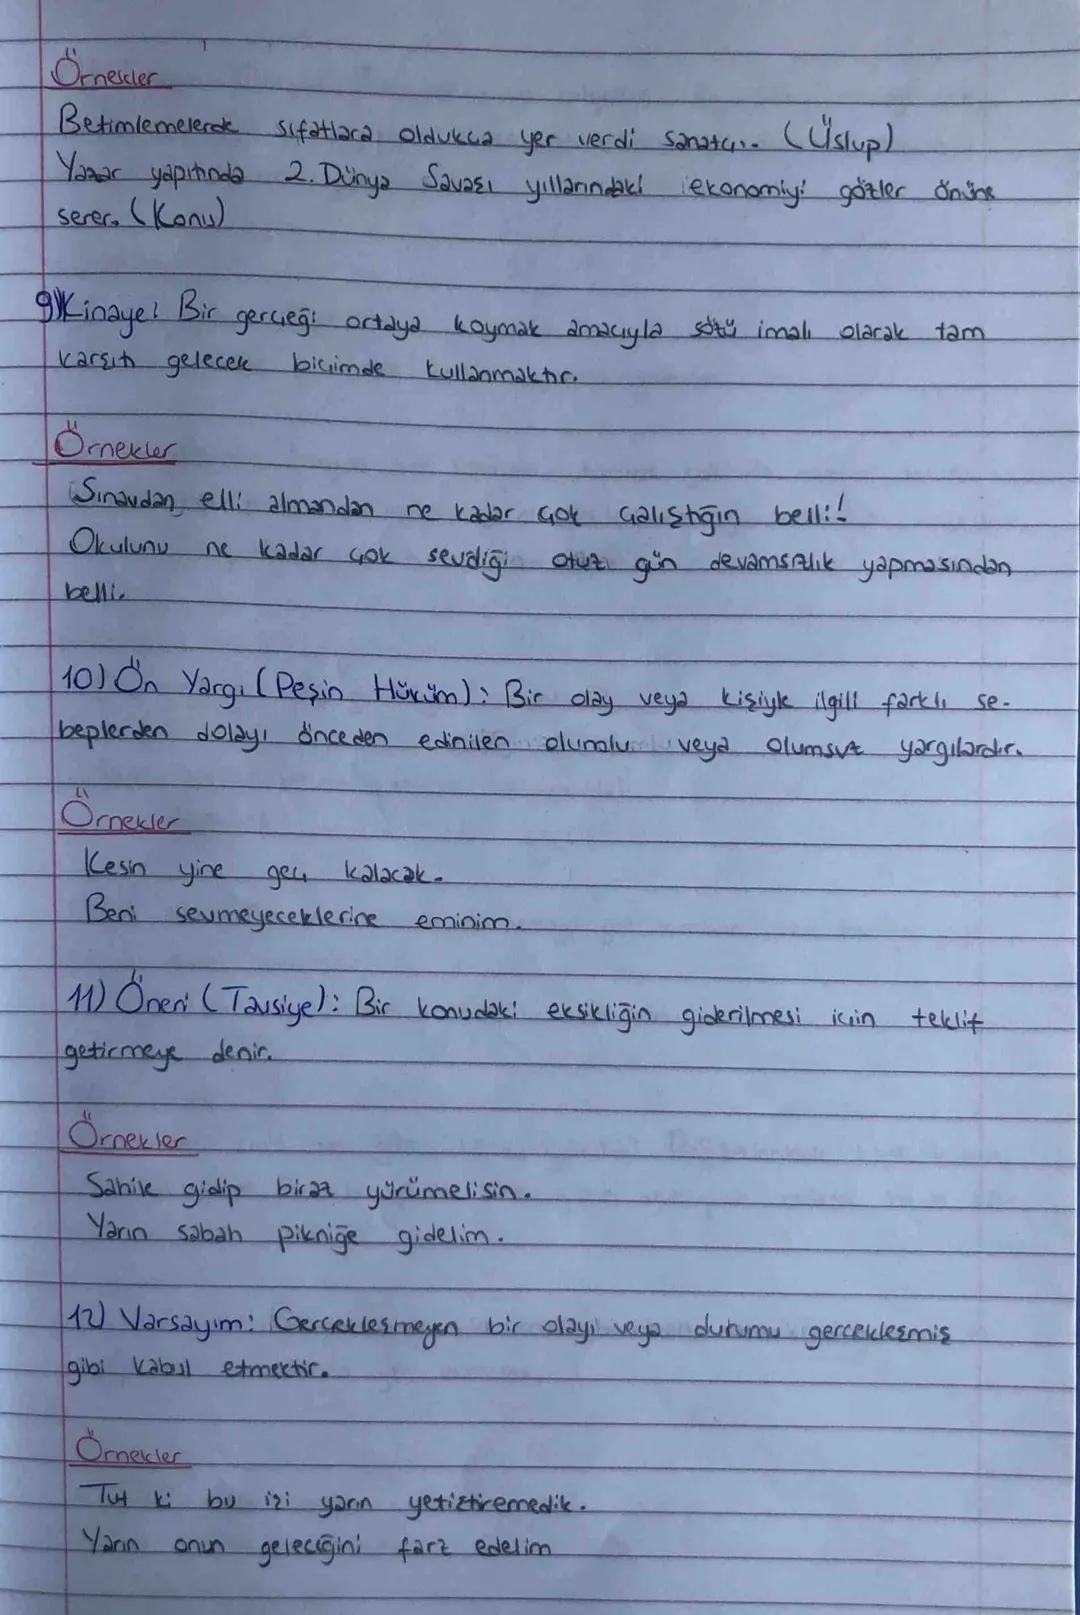 Örnekler
Betimlemelerok sıfatlara oldukça yer verdi sanatçı. (Üslup)
Yazar yapıtında 2. Dünya Savaşı yıllarındaki ekonomiyi gözler önüne
serer. (Konu)
9) Kinaye: Bir gerçeği ortaya koymak amacıyla sözü imalı olarak tam
karşıtı gelecek biçimde kullanmaktır.
Örnekler
Sınavdan elli almandan ne kadar çok çalıştığın belli!
Okulunu ne kadar çok sevdiği otuz gün devamsızlık yapmasından
belli.
10) Ön Yargı (Peşin Hüküm): Bir olay veya kişiyle ilgili farklı se-
beplerden dolayı önceden edinilen olumlu veya olumsuz yargılardır.
Örnekler
Kesin yine geç kalacak.
Beni sevmeyeceklerine eminim.
11) Öneri (Tavsiye): Bir konudaki eksikliğin giderilmesi için teklif
getirmeye denir.
Örnekler
Sahile gidip biraz yürümelisin.
Yarın sabah pikniğe gidelim.
12) Varsayım: Gerçekleşmeyen bir olayı veya durumu gerçekleşmiş
gibi kabul etmektir.
Örnekler
Tut ki bu işi yarın yetiştiremedik.
Yarın onun geleceğini farz edelim